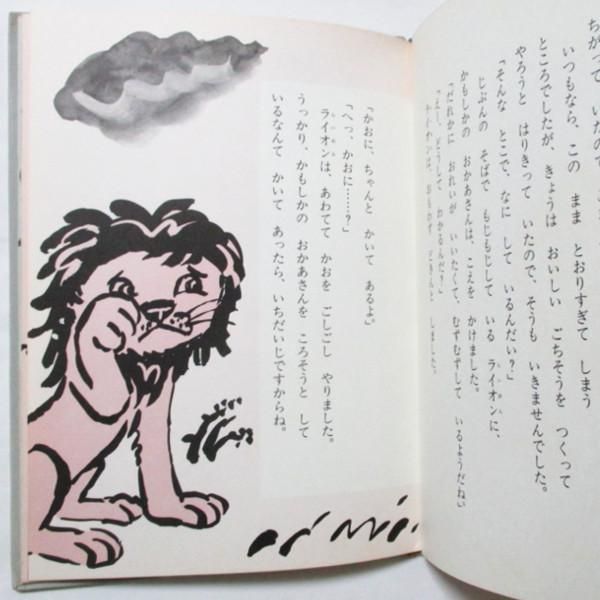 ちがって いたので
いつもなら、この まま とおりすぎて しまう
ところでしたが、きょうは おいしい ごちそうを つくって
やろうと はりきって いたので、そうも いきませんでした。
「そんな とこで、なに して いるんだい?」
じぶんの そばで もじもじして いる ライオンに、
かもしかの おかあさんは、こえを かけました。
「だれかに おれいが いいたくて、むずむずして いるようだね」
「えー、どうして わかるんだい?」
ライオンは、おもわず どきんと しました。
「かおに、ちゃんと かいて あるよ」
「へっ、かおに……?」
ライオンは、あわてて かおを ごしごし やりました。
うっかり、かもしかの おかあさんを ころそうと して
いるなんて かいて あったら、いちだいじですからね。